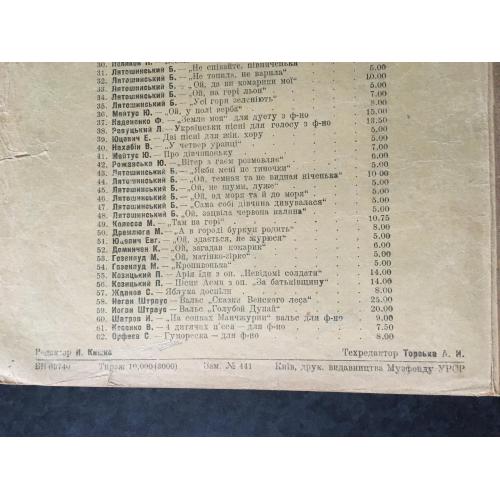 31. Лятошинський Б. — „Не співайте, півниченьки“ 5.00
32. Лятошинський Б. — „Не топила, не варила“ 10.00
33. Лятошинський Б. — „Ой, да ви комарики мої“ 5.00
34. Лятошинський Б. — „Ой, на горі льон“ 7.00
35. Лятошинський Б. — „Усі гори зеленіють“ 8.00
36. Мейтус Ю. — „Ой, у полі верба“ 15.00
37. Надененко Ф. — „Земле моя“ для дуету з ф-но 13.50
38. Ревуцький Л. — Українськи пісні для голосу з ф-но 5.00
39. Юцевич Е. — Дві пісні для жін. хору 5.00
40. Нахабін В. — „У четвер уранці“ 7.00
41. Мейтус Ю. — Про дівчиноньку 6.00
42. Рожавська Ю. — „Вітер з гаєм розмовляє“ 5.00
43. Лятошинський Б. — „Якби мені не тиночки“ 10.00
44. Лятошинський Б. — „Ой, темная та не видная ніченька“ 5.00
45. Лятошинський Б. — „Ой, не шуми, луже“ 5.00
46. Лятошинський Б. — „Ой, од моря та й до моря“ 5.00
47. Лятошинський Б. — „Сама собі дівчина дивувалася“ 5.00
48. Лятошинський Б. — „Ой, зацвіла червона калина“ 5.00
49. Колесса М. — „Там на горі“ 10.75
50. Дремлюга М. — „А в городі буркун родить“ 8.00
51. Юцевич Евг. — „Ой, здається, не журюся“ 5.00
52. Домінчен К. — „Ой, загадав комарик“ 6.00
53. Гозенпуд М. — „Ой, матінко-зірко“ 5.00
54. Гозенпуд М. — „Кропивонька“ 5.00
55. Козицький П. — Арія Іди з оп. „Невідомі солдати“ 14.00
56. Козицький П. — Пісня Асма з оп. „За батьківщину“ 14.00
57. Жданов С. — Яблука доспіли 8.00
58. Иоган Штраус — Вальс „Сказка Венского леса“ 25.00
59. Иоган Штраус — Вальс „Голубой Дунай“ 20.00
60. Шатров И. — „На сопках Манчжурии“ вальс для ф-но 9.00
61. Косенко В. — 4 дитячих п'єси — для ф-но 7.50
62. Орфеєв С. — Гумореска — для ф-но 8.00
Редактор Я. Кишка Техредактор Торська А. И.
БН 03740 Тираж 10,000(3000) Зам. № 441 Київ, друк. видавництва Музфонду УРСР